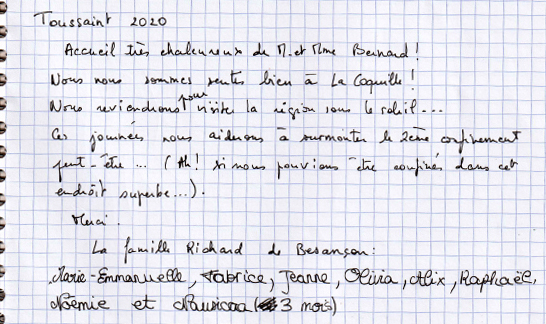 Toussaint 2020
Accueil très chaleureux de M. et Mme Bernard !
Nous nous sommes sentis bien à La Coquille !
Nous reviendrons pour visiter la région sous le soleil...
Ces journées nous aiderons à surmonter le 2ème confinement
peut-être ... (Ah ! si nous pouvions être confinés dans cet
endroit superbe...).
Merci.
La famille Richard de Besançon :
Marie-Emmanuelle, Fabrice, Jeanne, Olivia, Alix, Raphaël,
Noémie et Nausicaa (3 mois)